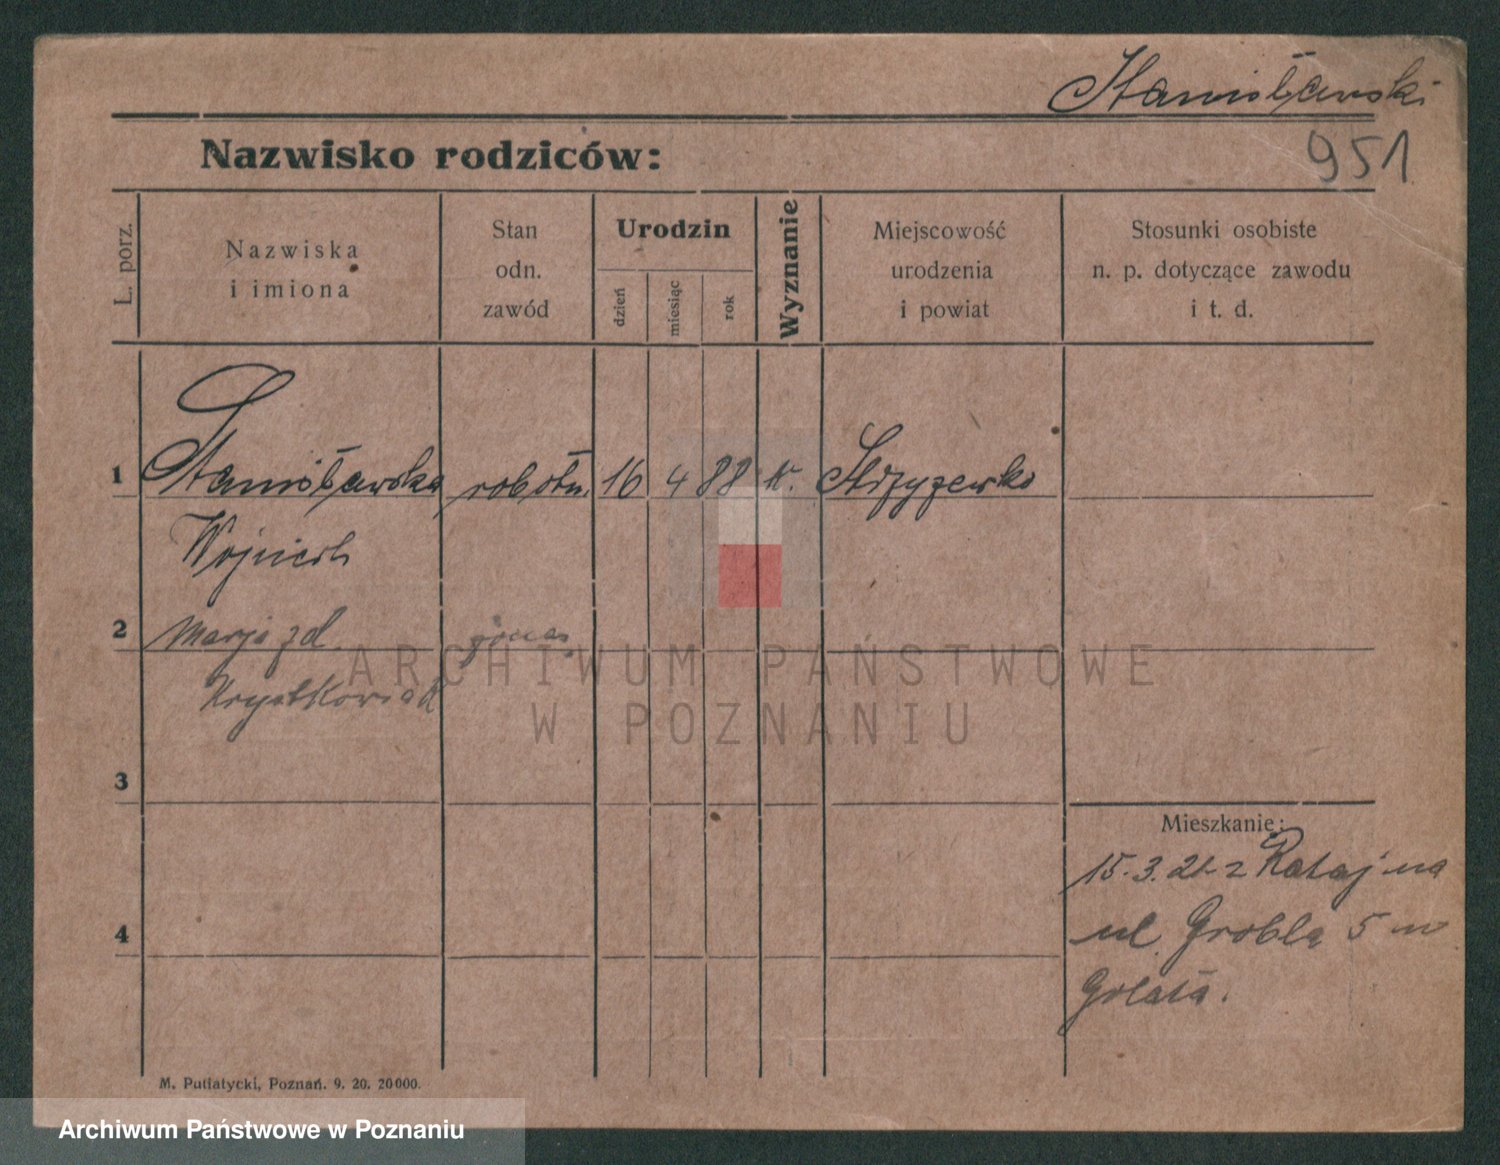 Stanisławski
951
Nazwisko rodziców:
L. porz.
Nazwiska
i imiona
Stan
odn.
zawód
Urodzin
dzień
miesiąc
rok
Wyznanie
Miejscowość
urodzenia
i powiat
Stosunki osobiste
n. p. dotyczące zawodu
i t. d.
1 Stanisławska robotn. 16 4 88 k. Strzyzewko
Wojciech
2 Marja zd.
3
4
Mieszkanie:
15.3.21 z Rataj na
ul Grobla 5 u
M. Putiatycki, Poznań. 9. 20. 20000.
ARCHIWUM PAŃSTWOWE
W POZNANIU
Archiwum Państwowe w Poznaniu